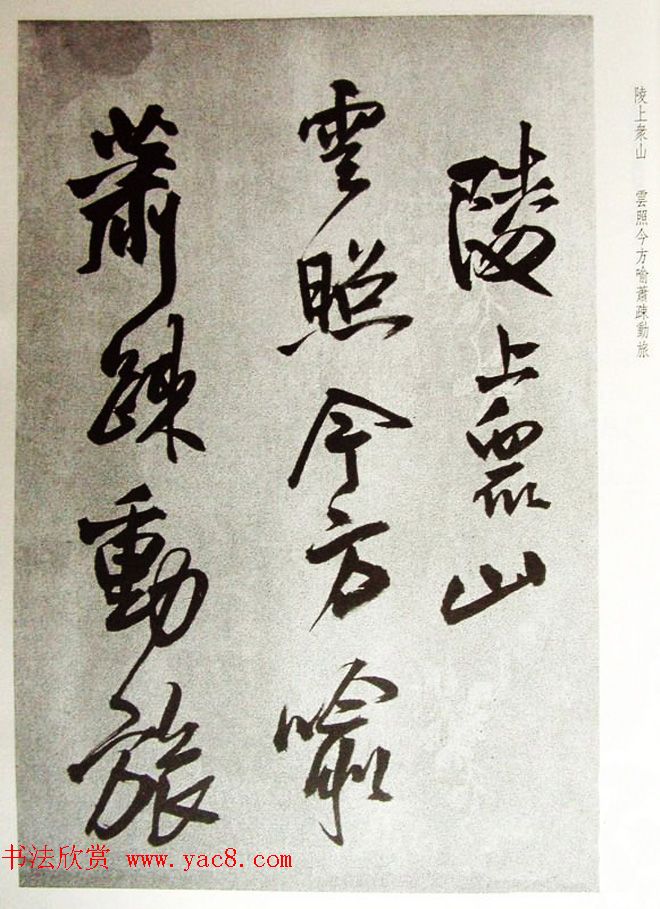 陵上衆山　雲照今方喻蕭疎動旅
陵上衆山
雲照今方喻
蕭疎動旅
书法欣赏 www.yac8.com